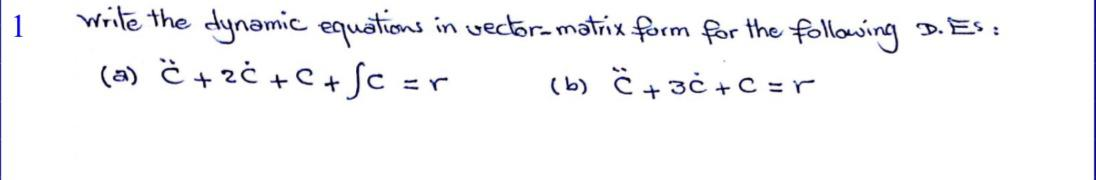 1 Write the dynamic equations in vector-matrix form for the following D.Es:
(a) c̈ + 2ċ + c + ∫c = r (b) c̈ + 3ċ + c = r